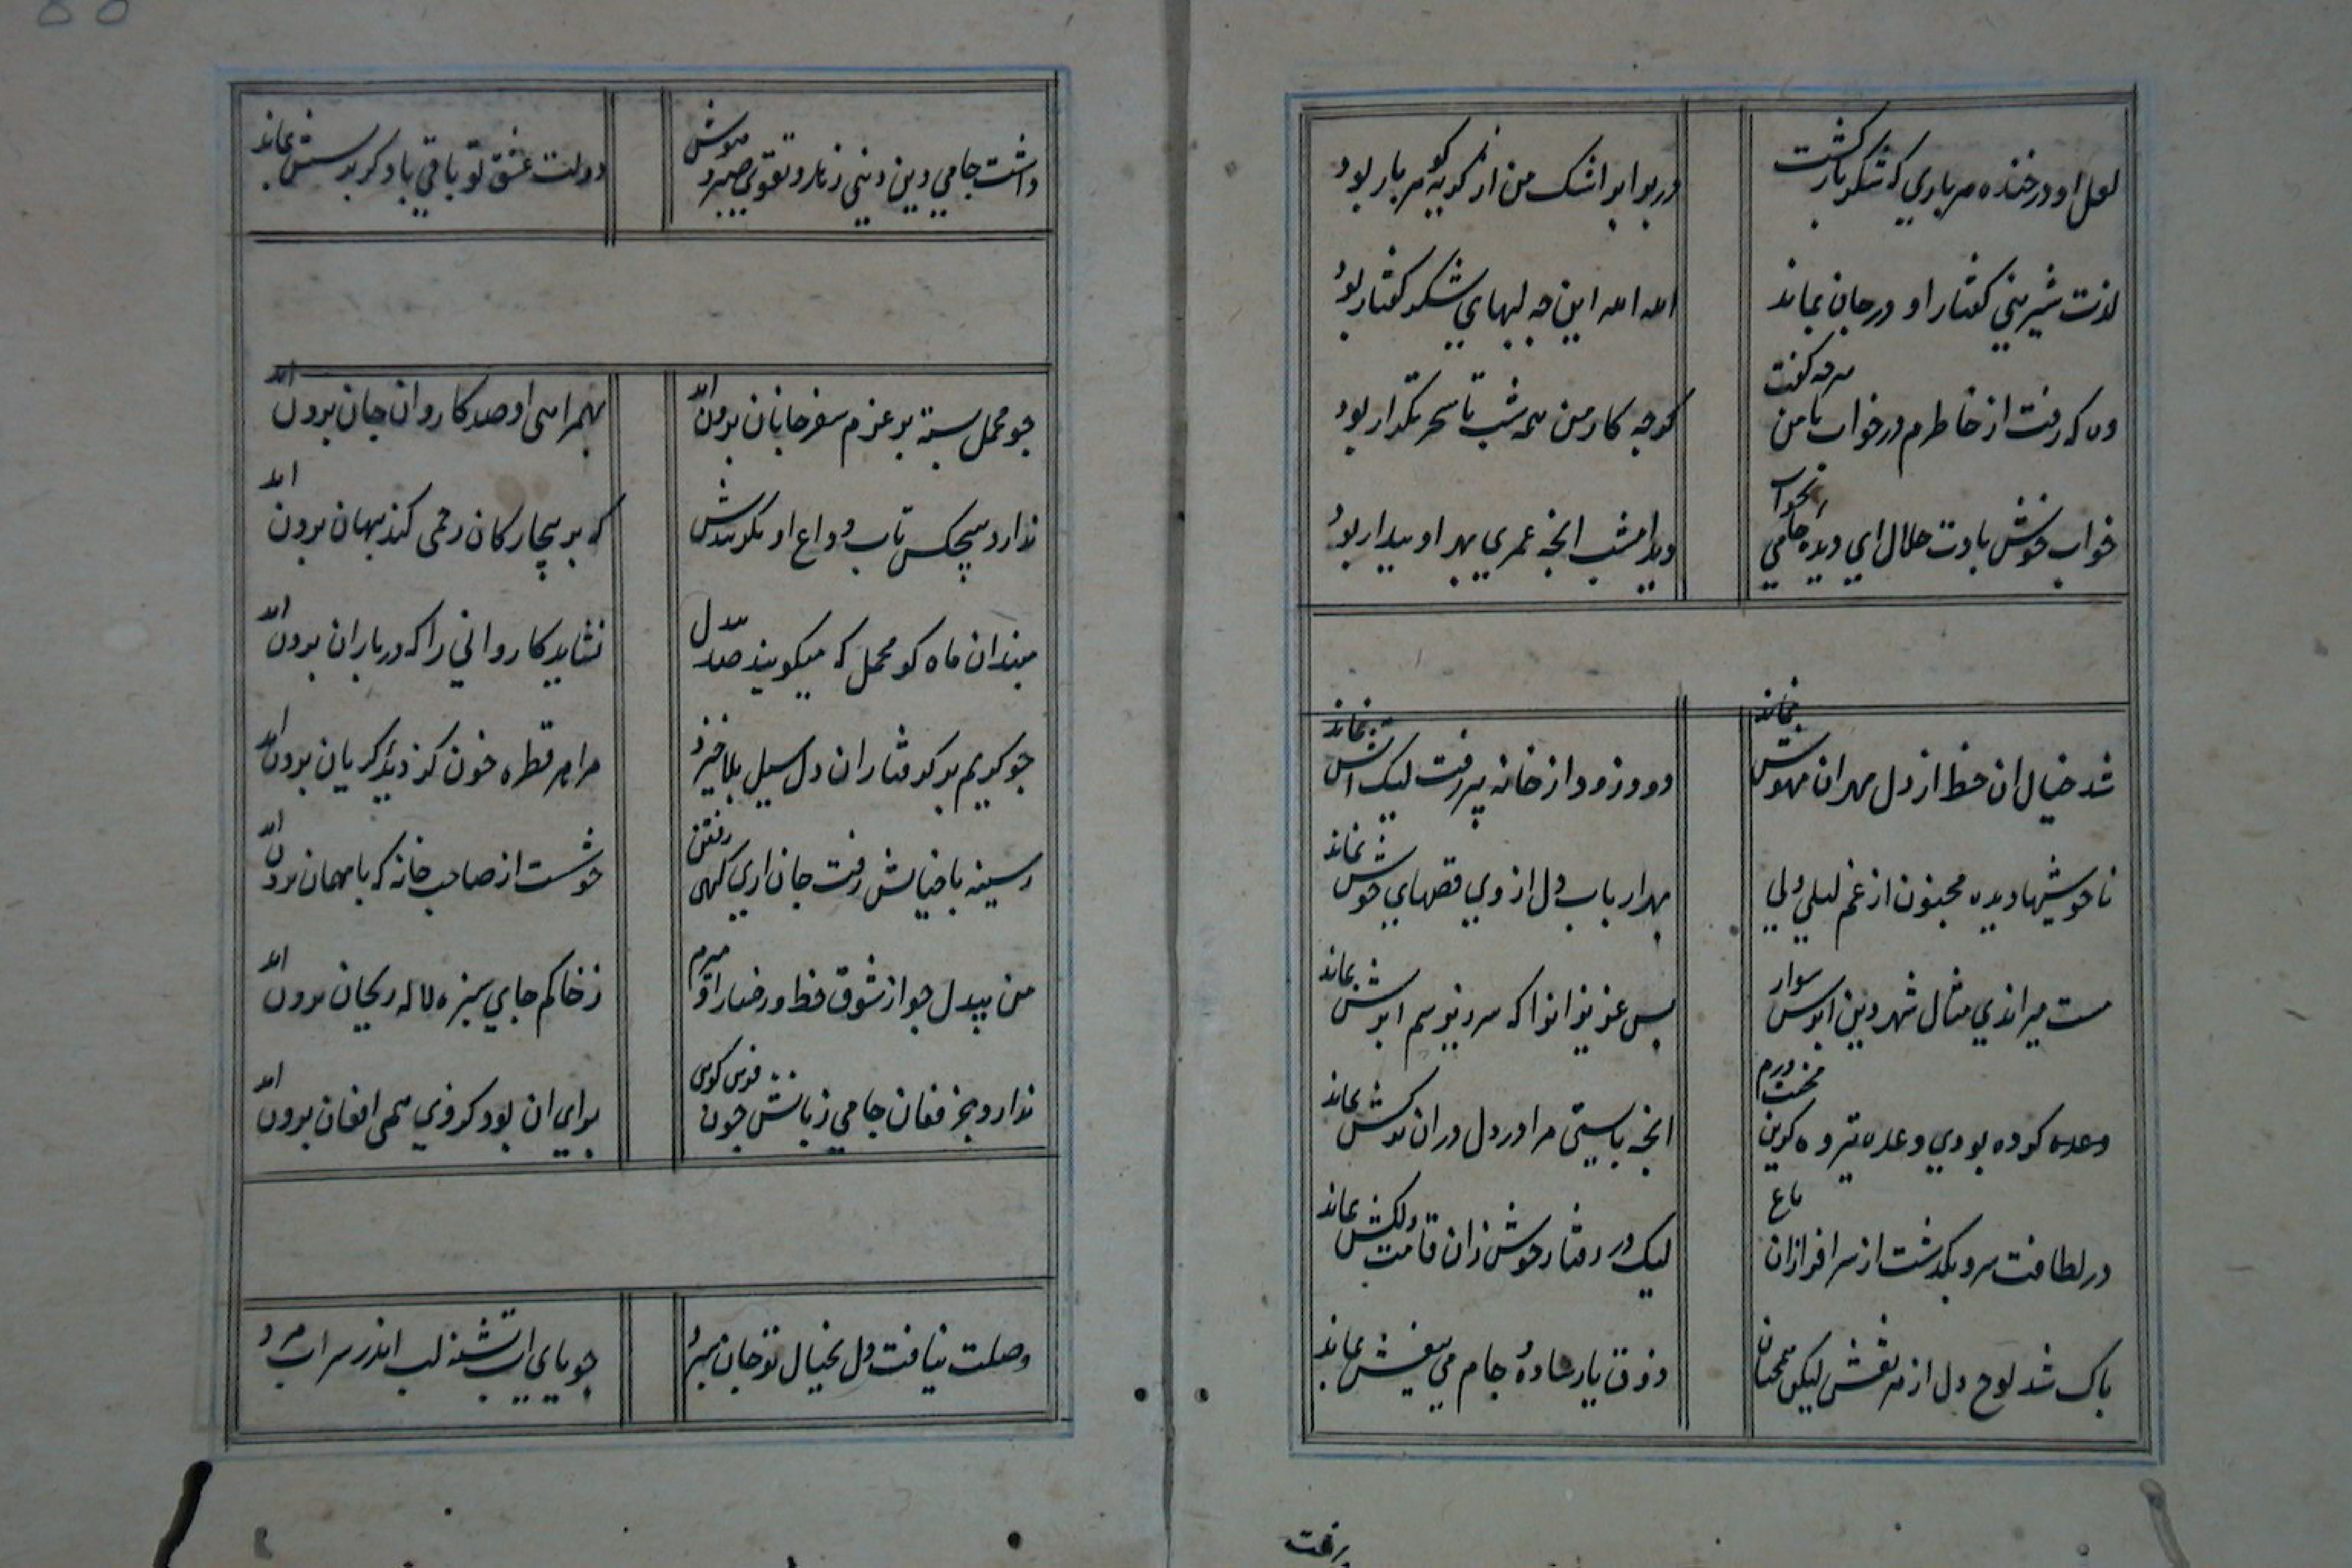 لعل او در خنده هر باری که شکر بار کشت
در برابر اشک من از کریه کوهر بار بود
لذت شیرینی کفتار او در جان بماند
الله الله این چه لبهای شکر کفتار بود
وه که رفت از خاطرم در خواب با من هر چه کفت
کرچه کار من همه شب تا سحر تکرار بود
خواب خوش بادت حلال ای دیده جامی
دید امشب انچه عمری بهر او بیدار بود
شد خیال ان خط از دل مهر ان مهوش نماند
دود زود از خانه بر رفت لیک اتش نماند
ناخوشیها دیده مجنون از غم لیلی ولی
بهر ارباب دل از وی قصهای خوش نماند
مست میراندی مثال شهر دین ابرش سوار
بس عزیزانرا که سر در سم ابرش بماند
وعده کرده بودی وعده تیر
انچه بایستی مرا در دل در ان ترکش بماند
در لطافت سرو بکذشت از سرافرازان باغ
لیک در رفتار خوش زان قامت دلکش بماند
پاک شد لوح دل از هر نقش لیکن همچنان
ذوق یار ساده و جام می بیغش بماند
داشت جامی دین و دنیی زهد و تقوی صبر و هوش
دولت عشق تو باقی باد کر هر شش نماند
چو محمل بسته بر عزم سفر جانان برون اید
بهمراهی او صد کاروان جان برون اید
ندارد هیچکس تاب وداع او بکوییدش
که بر بیچارکان رحمی کند پنهان برون اید
مبند ان ماه کو محمل که میکریند صد بیدل
نشاید کاروانی را که در باران برون اید
چو کریم بر کرفتاران دل سیل بلا خیزد
مرا هر قطره خون کز دیده کریان برون اید
ز سینه با خیالش رفت جان اری کهی رفتن
خوشست از صاحب خانه که با مهمان برون اید
من بیدل چو از شوق خط و رخسار او میرم
ز خاکم جای سبزه لاله و ریحان برون اید
ندارد جز فغان جامی زبانش چون
برای ان بود کز وی همی افغان برون اید
وصلت نیافت دل بخیال تو جان سپرد
جویای اب تشنه لب اندر سراب مرد
برفت